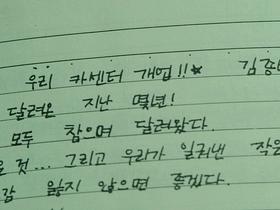 우리 카센터 개업!!★ 김종
달려온 지난 몇년!
모두 참으며 달려왔다.
것... 그리고 우리가 일궈낸 작은
감 잃지 않으면 좋겠다.